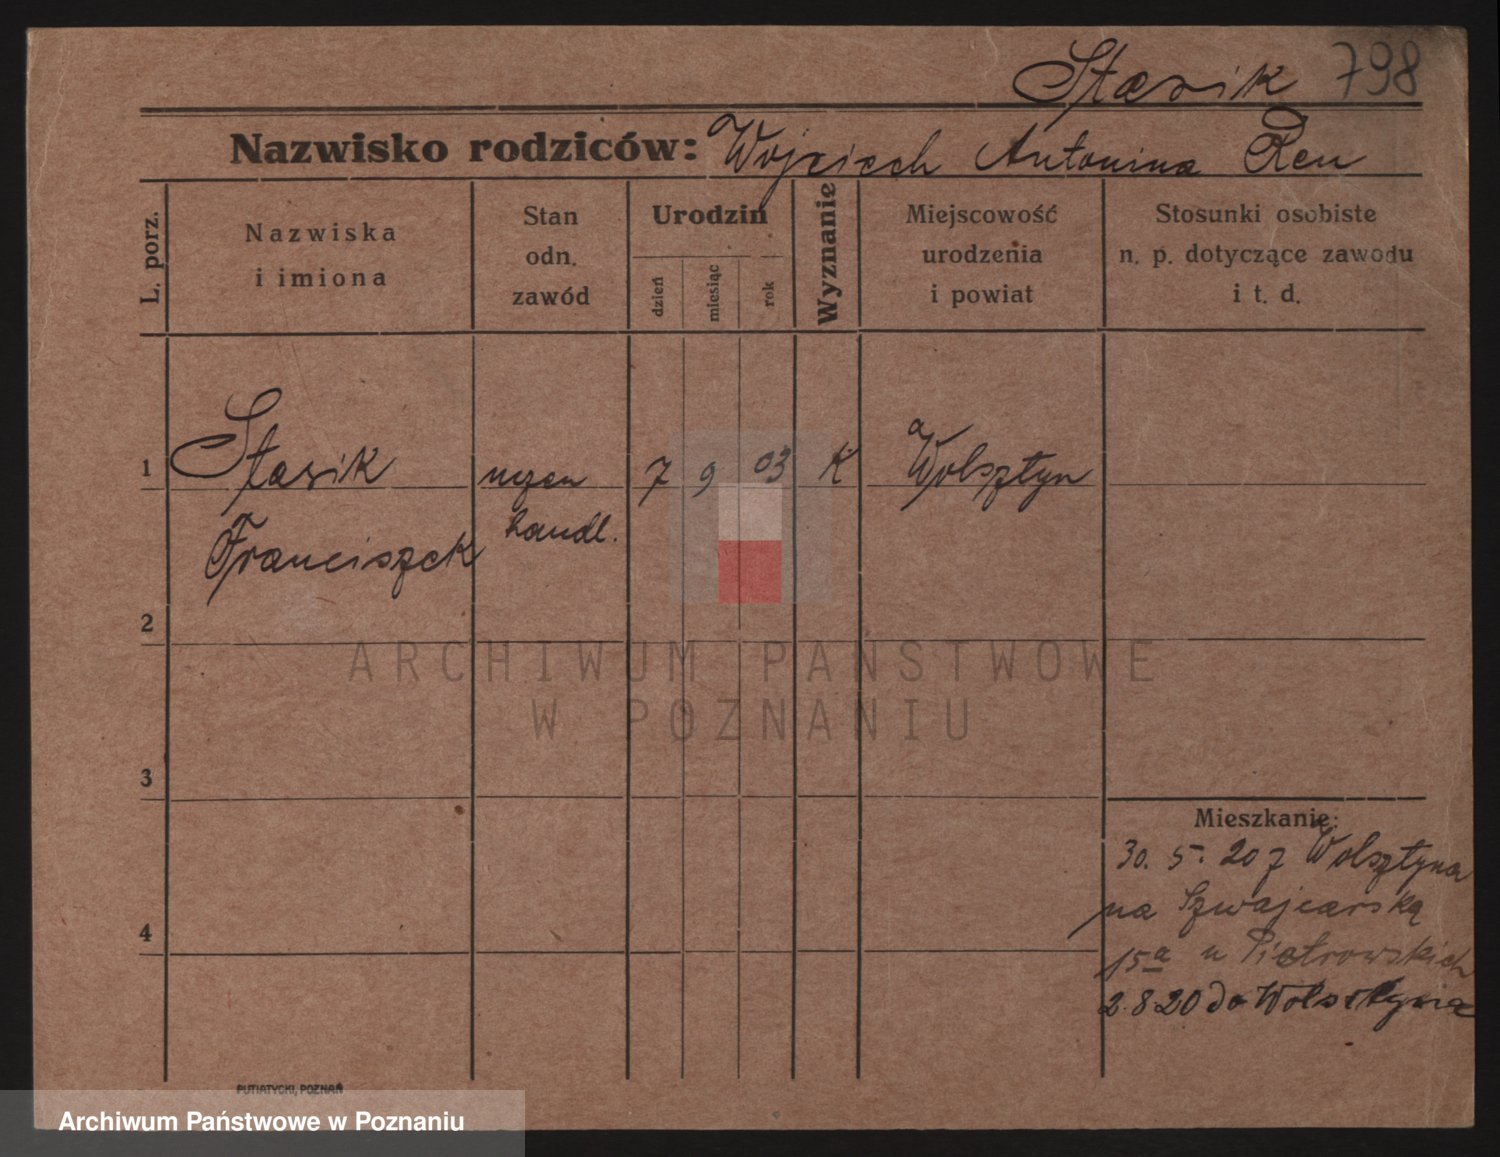 Stasik 798
Nazwisko rodziców: Wojciech Antonina Ren
L. porz.
Nazwiska
i imiona
Stan
odn.
zawód
Urodzin
dzień
miesiąc
rok
Wyznanie
Miejscowość
urodzenia
i powiat
Stosunki osobiste
n. p. dotyczące zawodu
i t. d.
1 Stasik uczeń 7 9 03 K Wolsztyn
Franciszek handl.
2
ARCHIWUM PAŃSTWOWE
W POZNANIU
3
Mieszkanie:
30. 5. 20 z Wolsztyna
na Szwajcarską
4
15a u Pietrowskich
2.8.20 do Wolsztyna
PUTIATYCKI, POZNAŃ
Archiwum Państwowe w Poznaniu